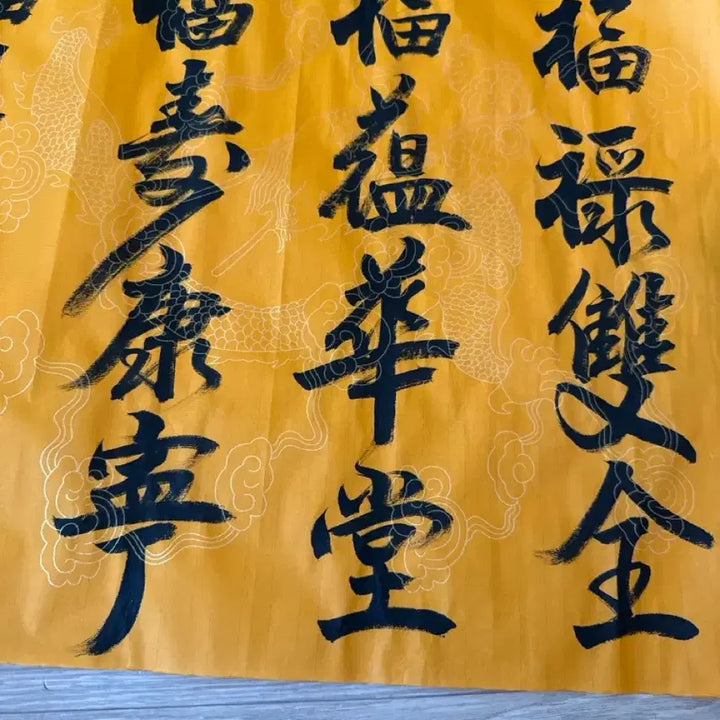 福祿雙全
福蘊華堂
福壽康寧